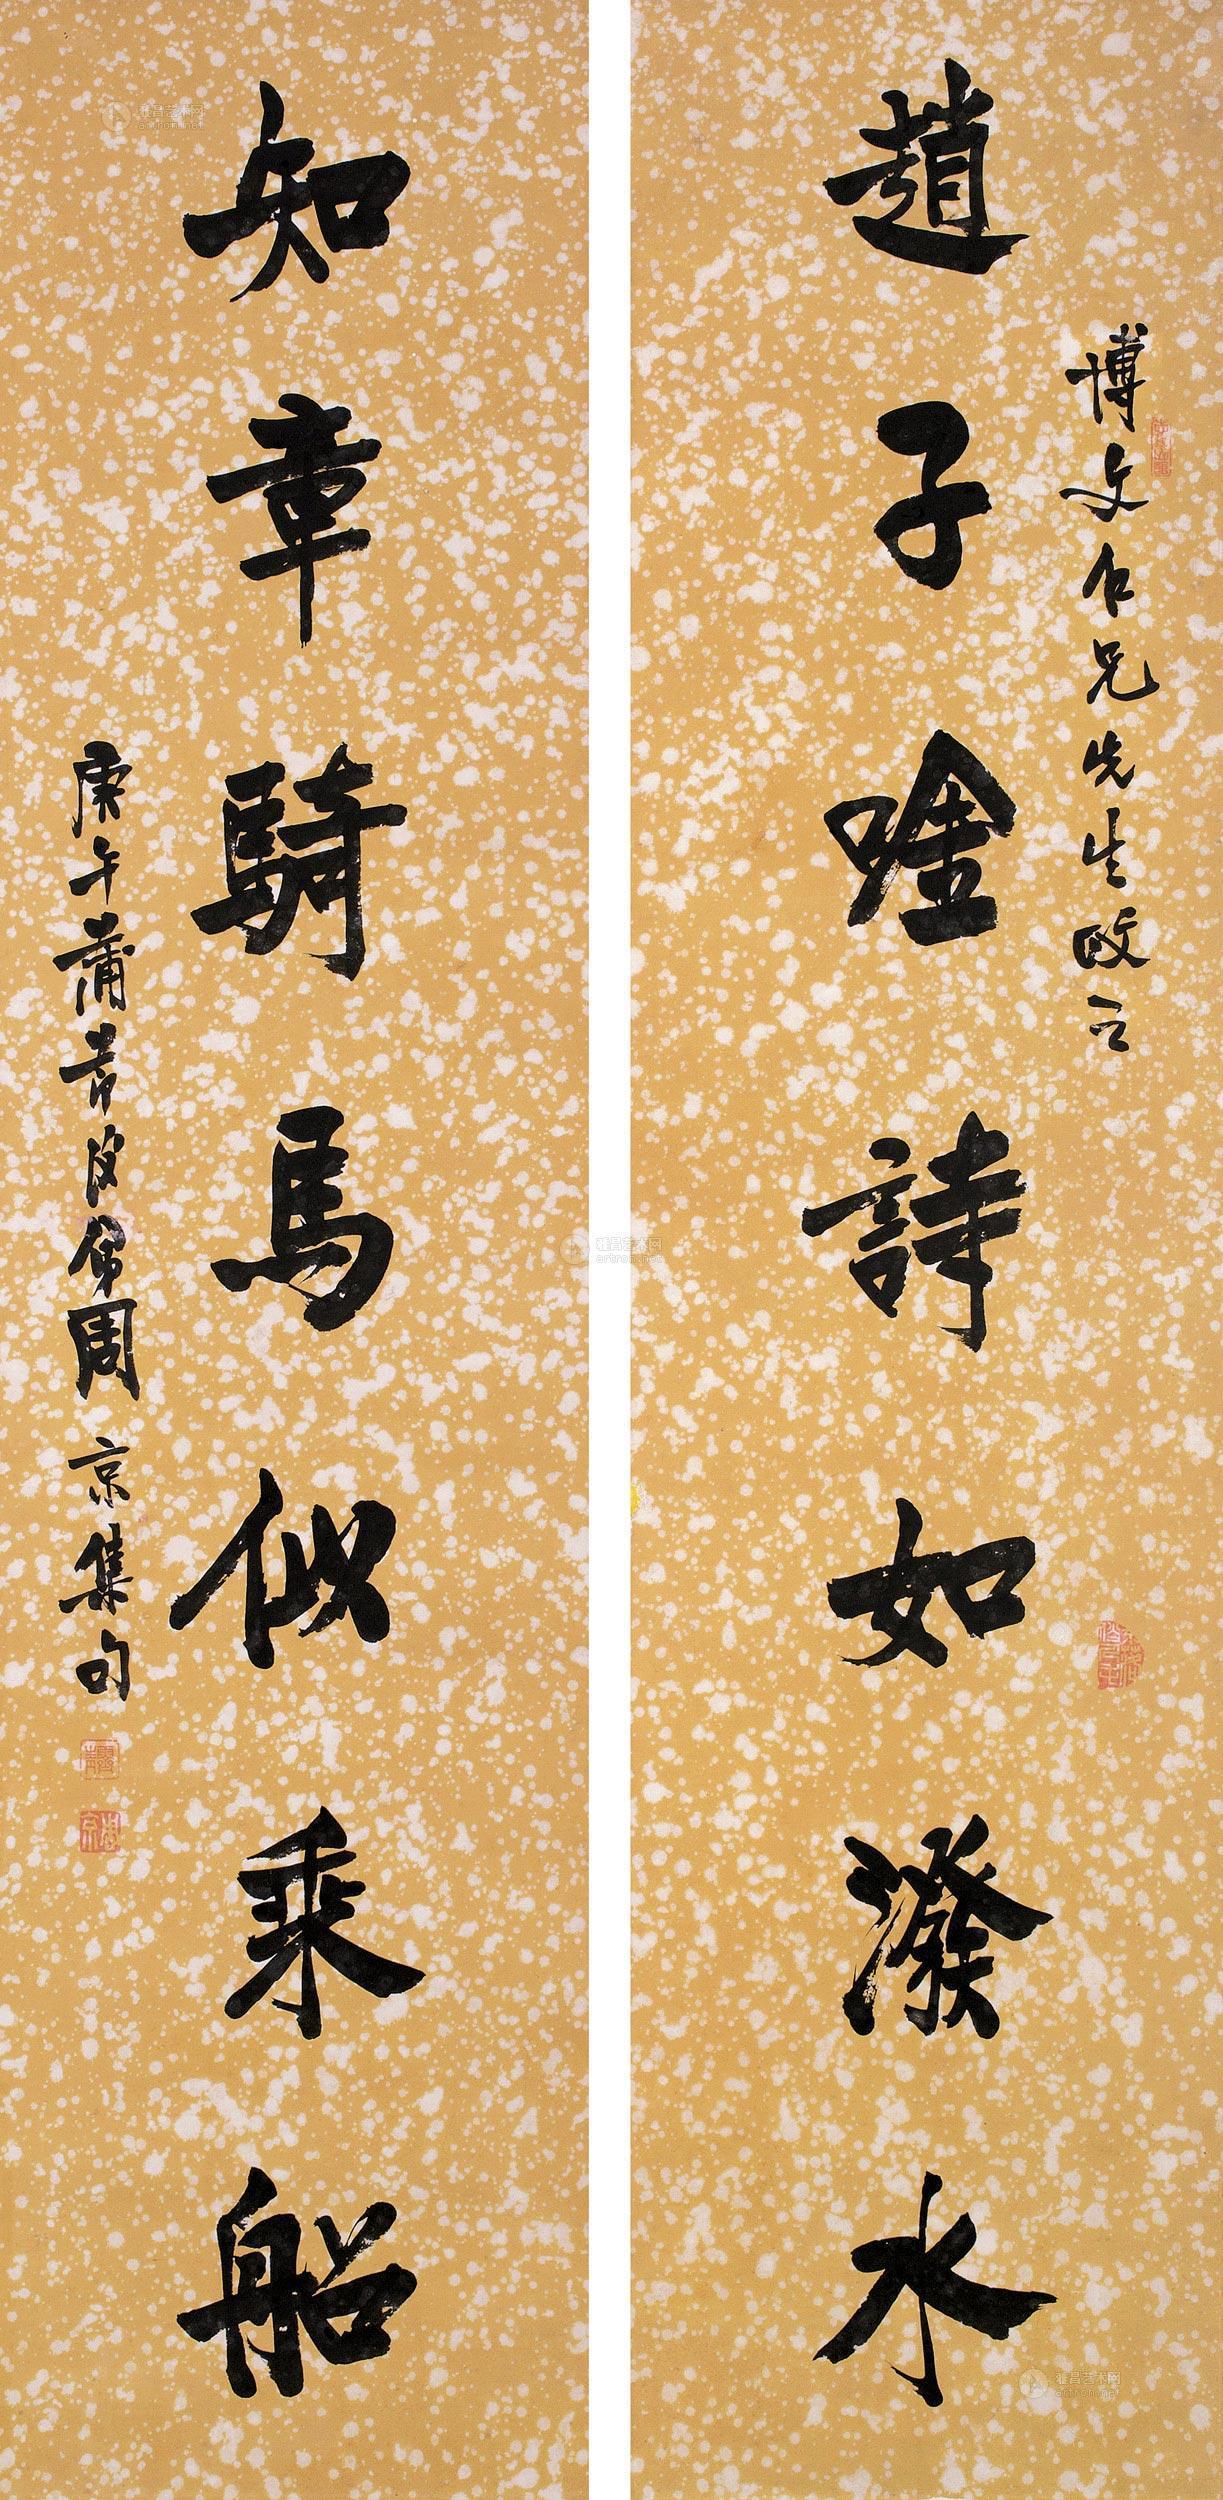 趙子唫詩如潑水
博文仁兄先生政之
知章騎馬似乘船
庚午蒲 弟周京集句
雅昌艺术网
artron.net
雅昌艺术网
artron.net
雅昌艺术网
artron.net